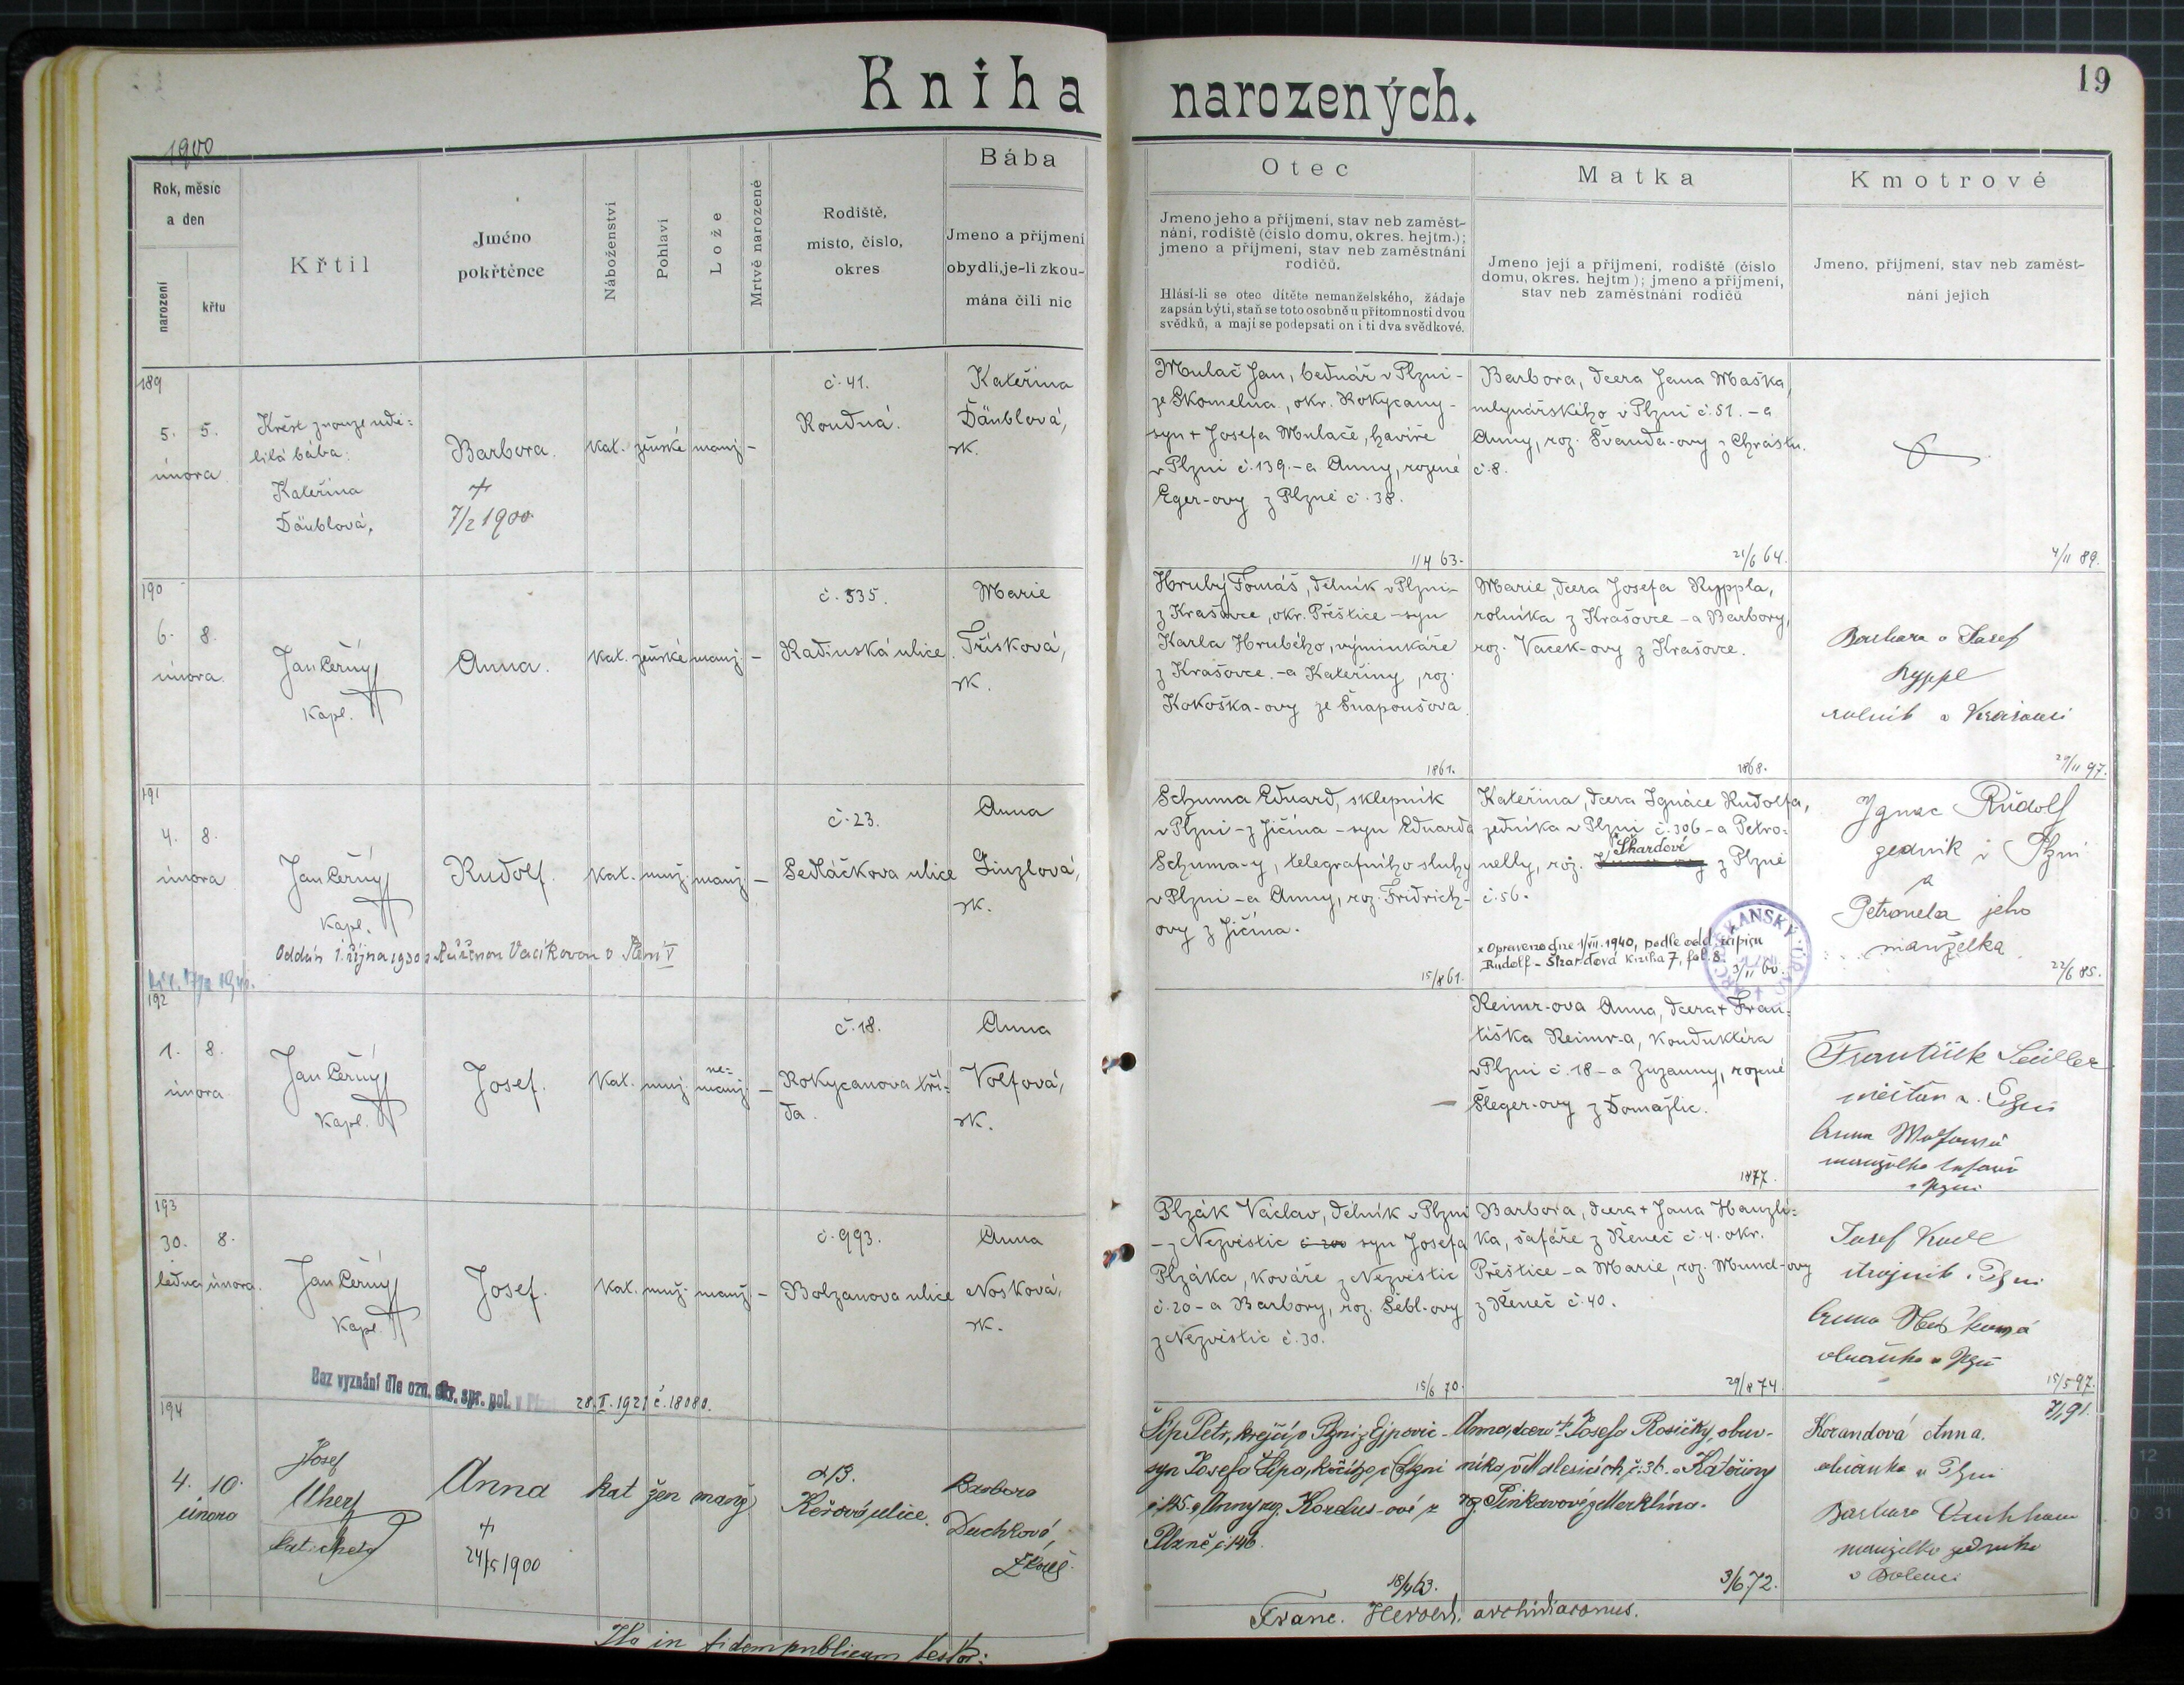 Kniha narozených.
19
1900
Rok, měsíc
a den
narození
křtu
Křtil
Jméno
pokřtěnce
Náboženství
Pohlaví
Lože
Mrtvě narozené
Rodiště,
místo, číslo,
okres
Bába
Jmeno a příjmení
obydlí, je-li zkou-
mána čili nic
Otec
Jmeno jeho a příjmení, stav neb zaměst-
nání, rodiště (číslo domu, okres. hejtm.);
jmeno a příjmení, stav neb zaměstnání
rodičů.
Hlásí-li se otec dítěte nemanželského, žádaje
zapsán býti, staň se toto osobně u přítomnosti dvou
svědků, a mají se podepsati on i ti dva svědkové.
Matka
Jmeno její a příjmení, rodiště (číslo
domu, okres. hejtm); jmeno a příjmení,
stav neb zaměstnání rodičů
Kmotrové
Jmeno, příjmení, stav neb zaměst-
nání jejich
189
5. 5.
února
Křest z nouze udě=
lila bába:
Kateřina
Däublová,
Barbora.
+
7/2 1900
kat. ženské manž. -
č. 41.
Roudná.
Kateřina
Däublová,
zk.
Mulač Jan, bednář v Plzni -
ze Skomelna, okr. Rokycany -
syn + Josefa Mulače, havíře
v Plzni č. 139. - a Anny, rozené
Eger-ovy z Plzně č. 38.
1/4 63.
Barbora, dcera Jana Maška,
mlynářského v Plzni č. 51. - a
Anny, roz. Švanda-ovy z Chrástu
č. 8.
21/6 64.
4/11 89.
190
6. 8.
února
Jan Černý
kapl.
Anna.
kat. ženské manž. -
č. 535.
Radinská ulice
Marie
Třísková,
zk.
Hrubý Tomáš, dělník v Plzni -
z Krašovce, okr. Přeštice - syn
Karla Hrubého, výminkáře
z Krašovce. - a Kateřiny, roz.
Kokoška-ovy ze Šnapoušova
1861.
Marie, dcera Josefa Ryppla,
rolníka z Krašovce - a Barbory,
roz. Vacek-ovy z Krašovce.
1868.
Barbara a Josef
Ryppl
rolník v Krašovci
29/11 97.
191
4. 8.
února
Jan Černý
kapl.
Rudolf.
kat. muž. manž. -
č. 23.
Sedláčkova ulice
Anna
Ginzlová,
zk.
Oddán 1. října 1930 s Růženou Vacíkovou v Plzni V
Schuma Eduard, sklepník
v Plzni - z Jičína - syn Eduarda
Schuma-y, telegrafního sluhy
v Plzni - a Anny, roz. Fridrich-
ovy z Jičína.
15/8 61.
Kateřina, dcera Ignáce Rudolfa,
zedníka v Plzni č. 306 - a Petro=
nelly, roz. Škardové z Plzně
č. 56.
x Opraveno dne 1/VII. 1940, podle odd. zápisu
Rudolf - Škardová kniha 7, fol. 8.
3/11 60.
Ignac Rudolf
zednik v Plzni
a
Petronela jeho
manželka
22/6 85.
192
1. 8.
února
Jan Černý
kapl.
Josef.
kat. muž. ne=
manž. -
č. 18.
Rokycanova tří=
da.
Anna
Volfová,
zk.
-
Reimr-ova Anna, dcera + Fran=
tiška Reimr-a, konduktéra
v Plzni č. 18 - a Zuzanny, rozené
Šleger-ovy z Domažlic.
1877.
František Seidler
měšťan v Plzni
Anna Wolfová
v Plzni
193
30. 8.
ledna února.
Jan Černý
kapl.
Josef.
kat. muž. manž. -
č. 993.
Bolzanova ulice
Anna
Nosková,
zk.
Bez vyznání dle ozn. okr. spr. pol. v Plzni 28.I.1921 č. 18080.
Plzák Václav, dělník v Plzni
- z Nezvěstic č. 200 syn Josefa
Plzáka, kováře z Nezvěstic
č. 20 - a Barbory, roz. Šebl-ovy
z Nezvěstic č. 30.
15/6 70.
Barbora, dcera + Jana Hanzlí=
ka, šafáře z Řeneč č. 4. okr.
Přeštice - a Marie, roz. Mund-ovy
z Řeneč č. 40.
29/8 74.
Josef
strojník v Plzni
Anna Nosková
obuvníka v Plzni
15/5 97.
194
4. 10.
února
Josef
Uherý
katecheta
Anna
+
24/5 1900
kat žen manž
č. 13.
Keřová ulice.
Barbora
Duchková,
zkouš.
Šíp Petr, krejčí v Plzni z Ejpovic -
syn Josefa Šípa, kočího v Plzni
č. 145. a Anny roz. Kordus-ové z
Plzně č. 146.
18/4 63.
Anna, dcera + Josefa Rosičky, obuv-
níka v Malesicích č. 36. a Kateřiny
roz. Pinkavové z Merklína.
3/6 72.
7/1 91.
Korandová Anna.
v Plzni
Barbara
manželka zedníka
v Bolevci
Ita in fidem publicam testor:
Franc. Herold, archidiaconus.